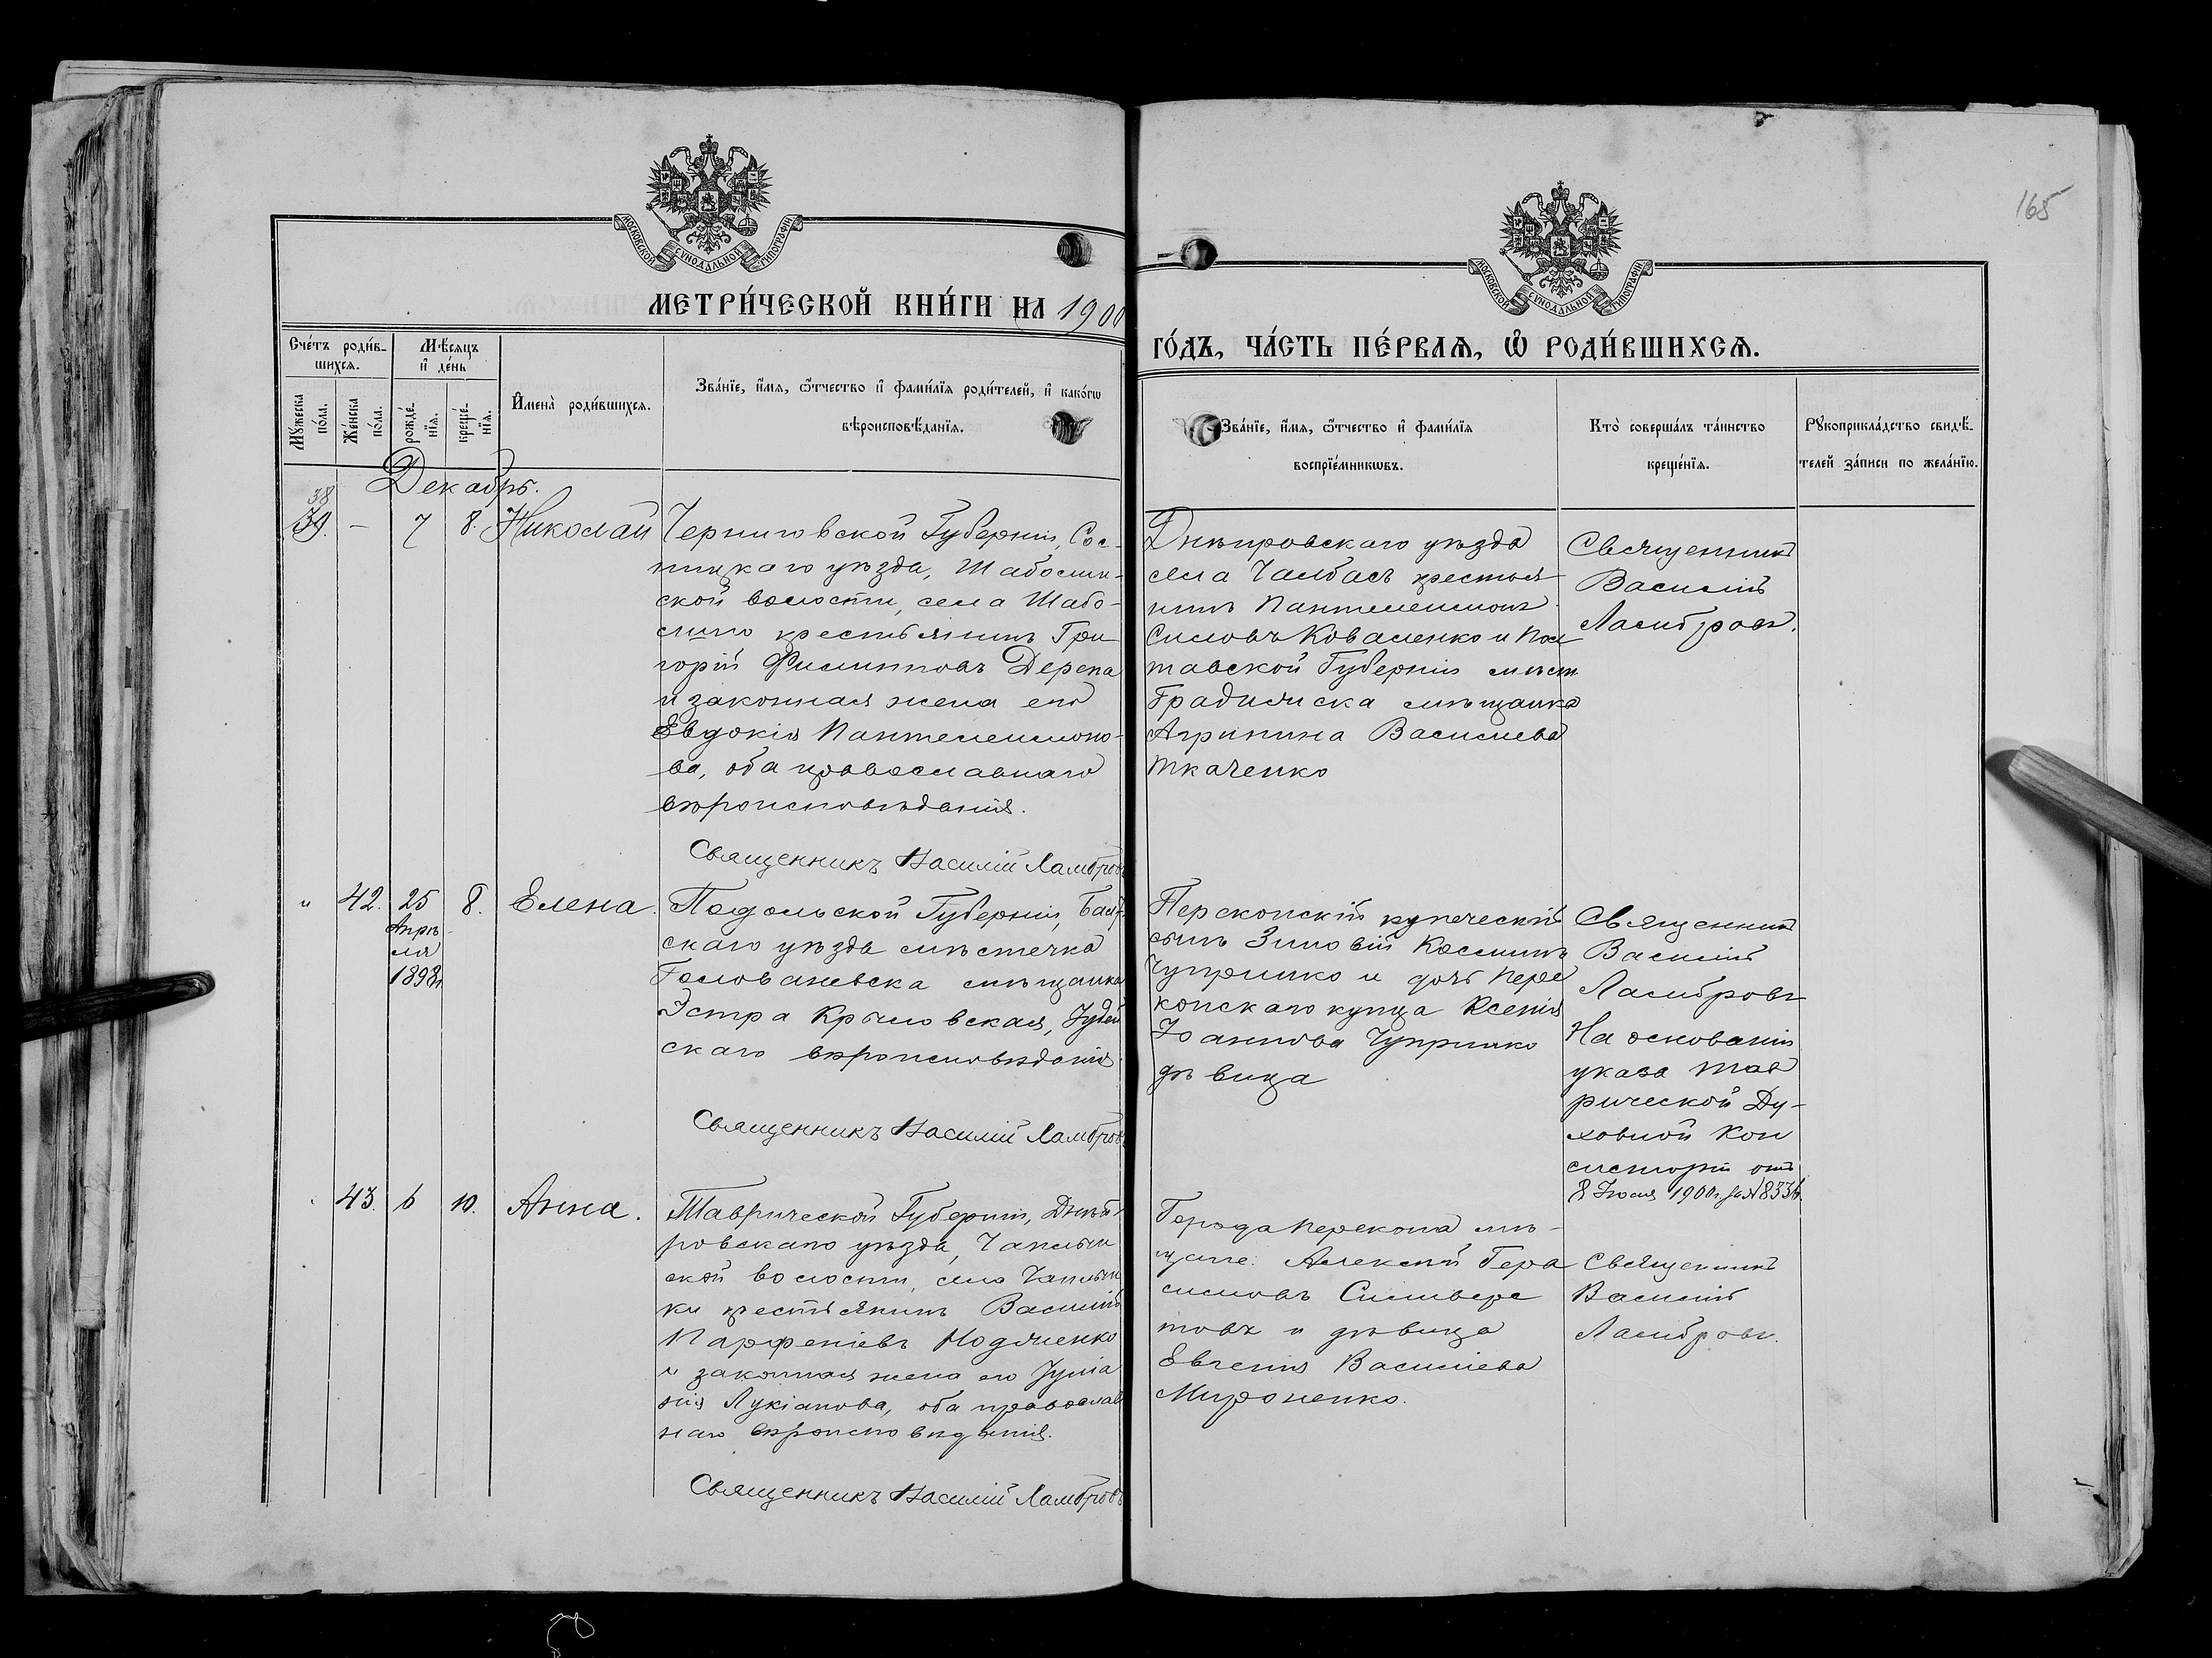 165
МОСКОВСКОЙ СѴНОДАЛЬНОЙ ТИПОГРАФІИ
МОСКОВСКОЙ СѴНОДАЛЬНОЙ ТИПОГРАФІИ
МЕТРИ́ЧЕСКОЙ КНИ́ГИ НА 1900
ГО́ДЪ, ЧА́СТЬ ПЕ́РВАѦ, Ѽ РОДИ́ВШИХСѦ.
Сче́тъ роди́в-
шихсѧ.
Мѣ́сѧцъ
и҆ де́нь
Мꙋ́жеска
по́ла.
Же́нска
по́ла.
рожде́-
нїѧ.
креще́-
нїѧ.
И҆мена̀ роди́вшихсѧ.
Зва́нїе, и҆́мѧ, ѻ҆́тчество и҆ фами́лїѧ роди́телей, и҆ како́гѡ
вѣроисповѣ́данїѧ.
Зва́нїе, и҆́мѧ, ѻ҆́тчество и҆ фами́лїѧ
воспрїе́мникѡвъ.
Кто̀ соверша́лъ та́инство
креще́нїѧ.
Рꙋкоприкла́дство свидѣ́-
телей за́писи по жела́нїю.
Декабрь.
38
39. — 7 8. Николай
Черниговской Губерніи, Сос-
ницкаго уѣзда, Шаболин-
ской волости, села Шабо-
лино крестьянинъ Гри
горій Филипповъ Дерепа
и законная жена его
Евдокія Пантелеимоно-
ва, оба православнаго
вѣроисповѣданія.
Священникъ Василій Ламбровъ
Днѣпровскаго уѣзда
села Чалбасъ крестья
нинъ Пантелеимонъ
Силовъ Коваленко и Пол
тавской Губерніи мѣст
Градижска мѣщанка
Агрипина Васильева
Ткаченко
Священникъ
Василій
Ламбровъ.
" 42. 25 8. Елена.
Апрѣ-
ля
1898г
Подольской Губерніи, Балт
скаго уѣзда мѣстечка
Голованевска мѣщанка
Эстра Крымовская, Іудей
скаго вѣроисповѣданія.
Священникъ Василій Ламбровъ
Перекопскій купеческій
сынъ Зиновій Косминъ
Чупринко и дочь Пере
копскаго купца Ксенія
Іоаннова Чупринко
дѣвица
Священникъ
Василій
Ламбровъ
На основаніи
указа Тав
рической Ду-
ховной Кон
систоріи отъ
8 Іюля 1900г. за № 8336.
43. 6 10. Анна.
Таврической Губерніи, Днѣп-
ровскаго уѣзда, Чаплын
ской волости, села Чаплын
ки крестьянинъ Василій
Парфеніевъ
и законная жена его Іуліа
нія Лукіанова, оба православ
наго вѣроисповѣданія.
Священникъ Василій Ламбровъ
Города Перекопа мѣ-
щане: Алексій Гера
симовъ Сильвере
стовъ и дѣвица
Евгенія Василіева
Мироненко.
Священникъ
Василій
Ламбровъ.